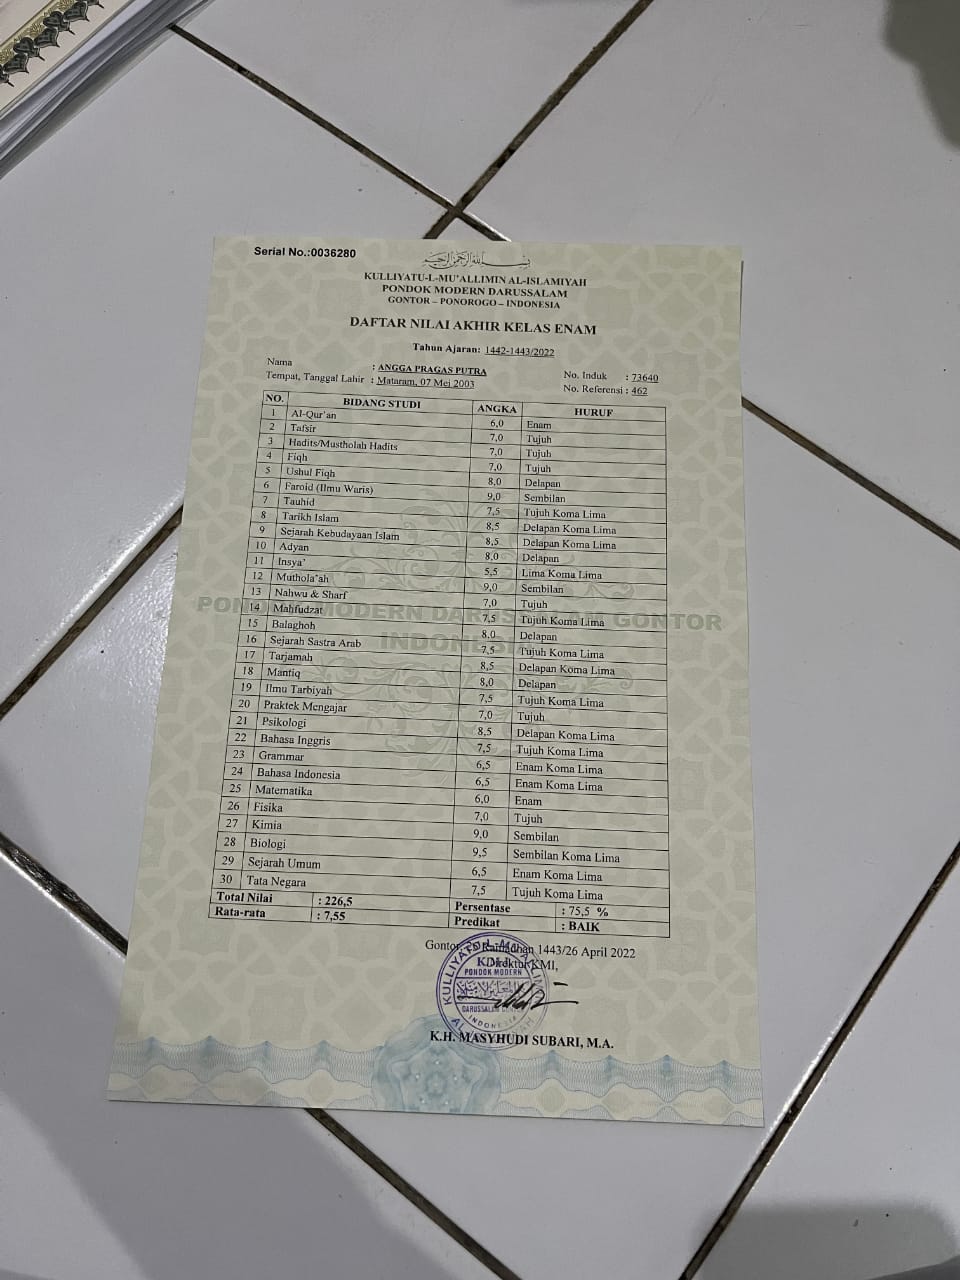 Serial No.:0036280
بسم الله الرحمن الرحيم
KULLIYATU-L-MU'ALLIMIN AL-ISLAMIYAH
PONDOK MODERN DARUSSALAM
GONTOR – PONOROGO – INDONESIA
DAFTAR NILAI AKHIR KELAS ENAM
Tahun Ajaran: 1442-1443/2022
Nama : ANGGA PRAGAS PUTRA No. Induk : 73640
Tempat, Tanggal Lahir : Mataram, 07 Mei 2003 No. Referensi : 462
NO. BIDANG STUDI ANGKA HURUF
1 Al-Qur'an 6,0 Enam
2 Tafsir 7,0 Tujuh
3 Hadits/Mustholah Hadits 7,0 Tujuh
4 Fiqh 7,0 Tujuh
5 Ushul Fiqh 8,0 Delapan
6 Faroid (Ilmu Waris) 9,0 Sembilan
7 Tauhid 7,5 Tujuh Koma Lima
8 Tarikh Islam 8,5 Delapan Koma Lima
9 Sejarah Kebudayaan Islam 8,5 Delapan Koma Lima
10 Adyan 8,0 Delapan
11 Insya' 5,5 Lima Koma Lima
12 Muthola'ah 9,0 Sembilan
13 Nahwu & Sharf 7,0 Tujuh
14 Mahfudzat 7,5 Tujuh Koma Lima
15 Balaghoh 8,0 Delapan
16 Sejarah Sastra Arab 7,5 Tujuh Koma Lima
17 Tarjamah 8,5 Delapan Koma Lima
18 Mantiq 8,0 Delapan
19 Ilmu Tarbiyah 7,5 Tujuh Koma Lima
20 Praktek Mengajar 7,0 Tujuh
21 Psikologi 8,5 Delapan Koma Lima
22 Bahasa Inggris 7,5 Tujuh Koma Lima
23 Grammar 6,5 Enam Koma Lima
24 Bahasa Indonesia 6,5 Enam Koma Lima
25 Matematika 6,0 Enam
26 Fisika 7,0 Tujuh
27 Kimia 9,0 Sembilan
28 Biologi 9,5 Sembilan Koma Lima
29 Sejarah Umum 6,5 Enam Koma Lima
30 Tata Negara 7,5 Tujuh Koma Lima
Total Nilai : 226,5 Persentase : 75,5 %
Rata-rata : 7,55 Predikat : BAIK
PONDOK MODERN DARUSSALAM GONTOR
INDONESIA
Gontor, Ramadhan 1443/26 April 2022
Direktur KMI,
KULLIYATU-L-MU'ALLIMIN AL-ISLAMIYAH
K.M.I
PONDOK MODERN
DARUSSALAM
INDONESIA
K.H. MASYHUDI SUBARI, M.A.